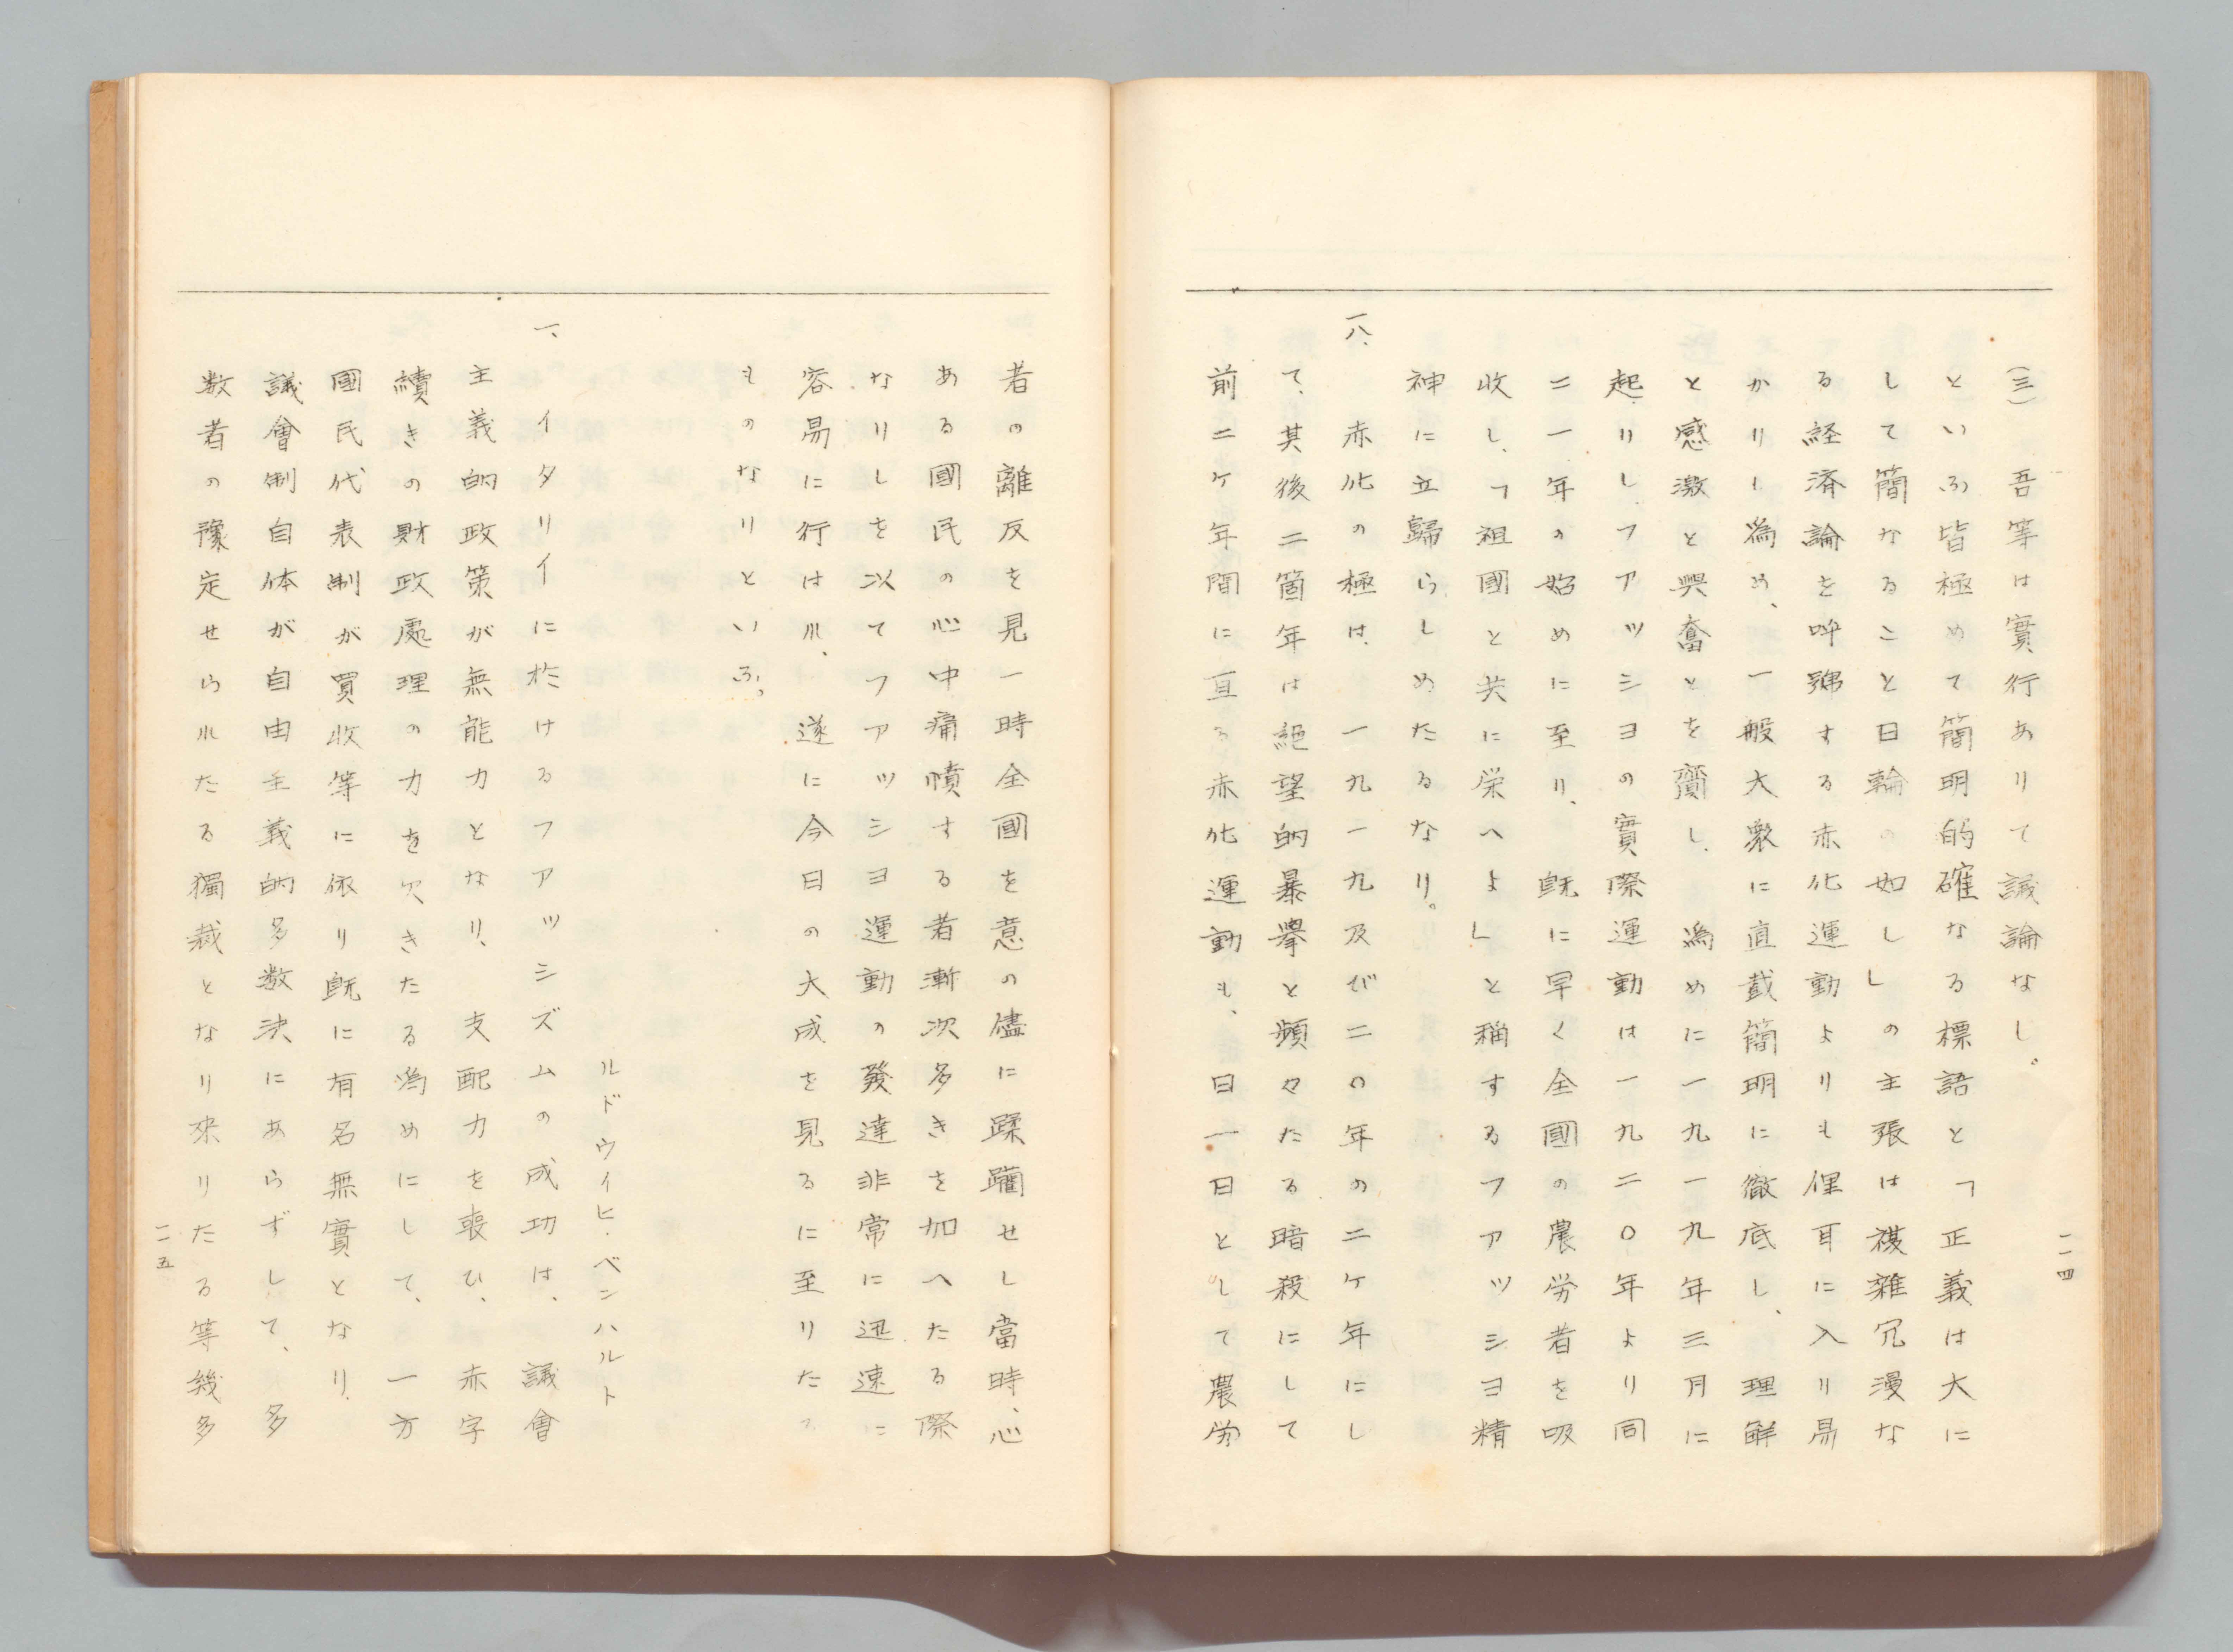 一一四
(三)　吾等は實行ありて議論なし。
といふ皆極めて簡明的確なる標語と「正義は大に
して簡なること日輪の如し」の主張は複雜冗漫な
る経済論を呼號する赤化運動よりも俚耳に入り易
かりし為め、一般大衆に直截簡明に徹底し、理解
と感激と興奮とを齎し、為めに一九一九年三月に
起りし、フアツシヨの實際運動は一九二〇年より同
二一年の始めに至り、既に早く全國の農労者を吸
收し、「祖國と共に栄へよ」と稱するフアツシヨ精
神に立歸らしめたるなり。
一八、赤化の極は、一九一九及び二〇年の二ケ年にし
て、其後二箇年は絕望的暴擧と頻々たる暗殺にして
前二ケ年間に亘る赤化運動も、日一日として農労
者の離反を見一時全國を意の儘に蹂躪せし當時、心
ある國民の心中痛憤する者漸次多きを加へたる際
なりしを以てフアツシヨ運動の發達非常に迅速に
容易に行はれ、遂に今日の大成を見るに至りたる
ものなりといふ。
ルドウイヒ・ベンハルト
一、イタリイに於けるフアツシズムの成功は、議會
主義的政策が無能力となり、支配力を喪ひ、赤字
續きの財政處理の力を欠きたる為めにして、一方
國民代表制が買收等に依り既に有名無實となり、
議會制自体が自由主義的多数決にあらずして、多
数者の豫定せられたる獨裁となり来りたる等幾多
一一五